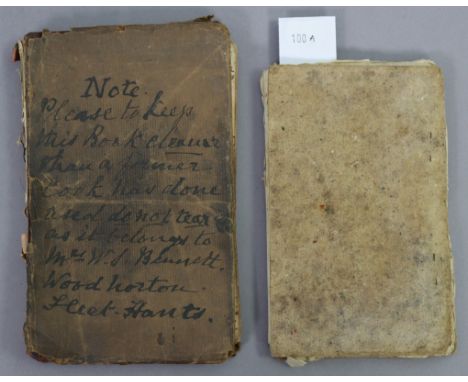 Note.
Please to keep
this Book cleaner
than a former
Cook has done
and do not tear
as it belongs to
Mrs W. S. Bennett.
Wood norton
Fleet. Hants.
100A